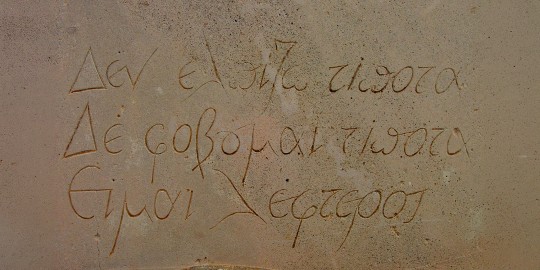 Δεν ελπιζω τιποτα
Δε φοβομαι τιποτα
Ειμαι λεφτερος